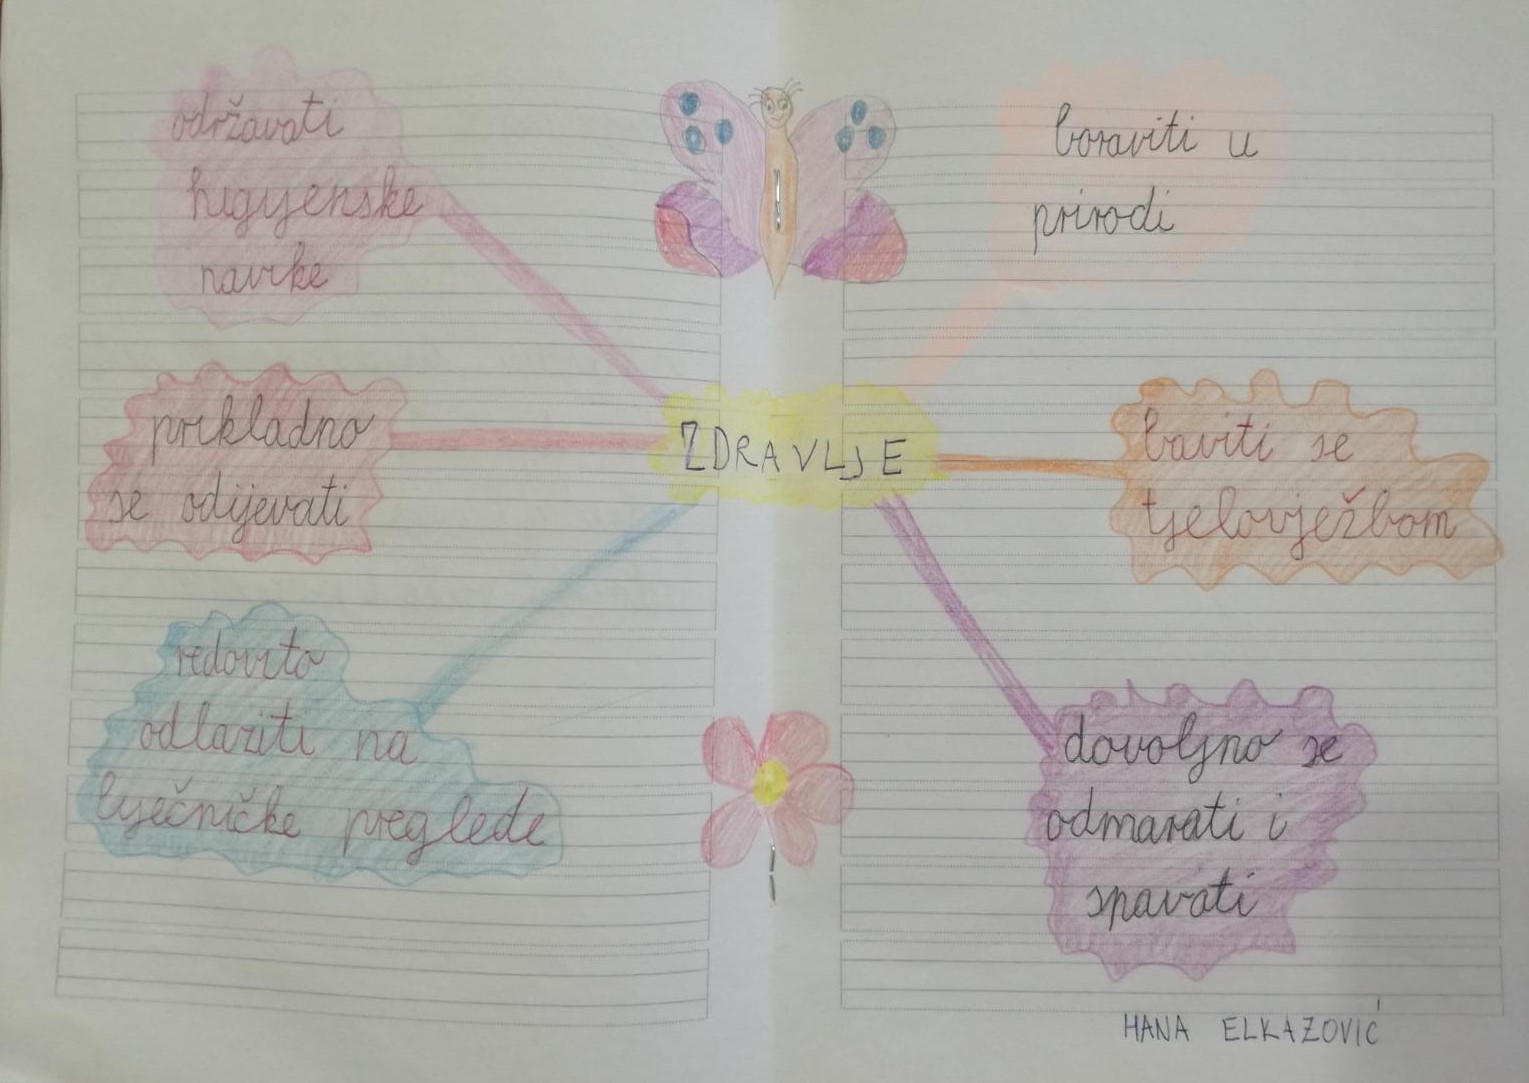 održavati
higijenske
navike
boraviti u
prirodi
prikladno
se odijevati
ZDRAVLJE
baviti se
tjelovježbom
redovito
odlaziti na
liječničke preglede
dovoljno se
odmarati i
spavati
HANA ELKAZOVIĆ